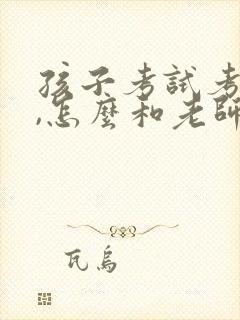 孩子考試考
,怎麼和老師
瓦烏